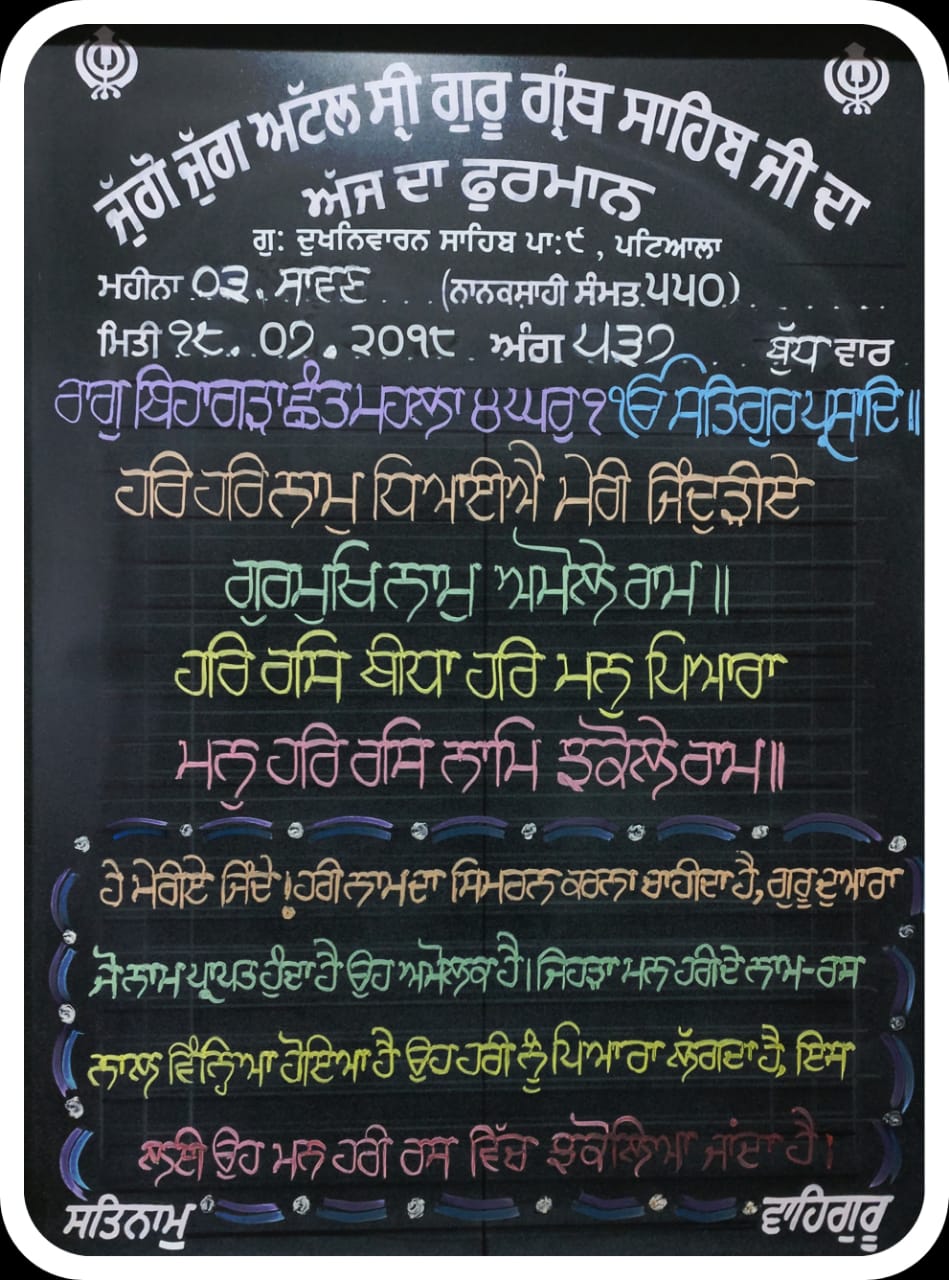 ਜੁੱਗੋ ਜੁੱਗ ਅੱਟਲ ਸ੍ਰੀ ਗੁਰੂ ਗ੍ਰੰਥ ਸਾਹਿਬ ਜੀ ਦਾ
ਅੱਜ ਦਾ ਫੁਰਮਾਨ
ਗੁ: ਦੁਖਨਿਵਾਰਨ ਸਾਹਿਬ ਪਾ:੯ , ਪਟਿਆਲਾ
ਮਹੀਨਾ ੦੩. ਸਾਵਣ (ਨਾਨਕਸ਼ਾਹੀ ਸੰਮਤ.੫੫੦)
ਮਿਤੀ ੧੮. ੦੭. ੨੦੧੮ ਅੰਗ ੫੩੭ ਬੁੱਧ ਵਾਰ
ਰਾਗੁ ਬਿਹਾਗੜਾ ਛੰਤ ਮਹਲਾ ੪ ਘਰੁ ੧ ੴ ਸਤਿਗੁਰ ਪ੍ਰਸਾਦਿ॥
ਹਰਿ ਹਰਿ ਨਾਮੁ ਧਿਆਈਐ ਮੇਰੀ ਜਿੰਦੁੜੀਏ
ਗੁਰਮੁਖਿ ਨਾਮੁ ਅਮੋਲੇ ਰਾਮ॥
ਹਰਿ ਰਸਿ ਬੀਧਾ ਹਰਿ ਮਨੁ ਪਿਆਰਾ
ਮਨੁ ਹਰਿ ਰਸਿ ਨਾਮਿ ਝਕੋਲੇ ਰਾਮ॥
ਹੇ ਮੇਰੀਏ ਜਿੰਦੇ! ਹਰੀ ਨਾਮ ਦਾ ਸਿਮਰਨ ਕਰਨਾ ਚਾਹੀਦਾ ਹੈ, ਗੁਰੂ ਦੁਆਰਾ
ਜੋ ਨਾਮ ਪ੍ਰਾਪਤ ਹੁੰਦਾ ਹੈ ਉਹ ਅਮੋਲਕ ਹੈ। ਜਿਹੜਾ ਮਨ ਹਰੀ ਦੇ ਨਾਮ-ਰਸ
ਨਾਲ ਵਿੰਨ੍ਹਿਆ ਹੋਇਆ ਹੈ ਉਹ ਹਰੀ ਨੂੰ ਪਿਆਰਾ ਲੱਗਦਾ ਹੈ, ਇਸ
ਲਈ ਉਹ ਮਨ ਹਰੀ ਰਸ ਵਿੱਚ ਝਕੋਲਿਆ ਜਾਂਦਾ ਹੈ।
ਸਤਿਨਾਮੁ ਵਾਹਿਗੁਰੂ